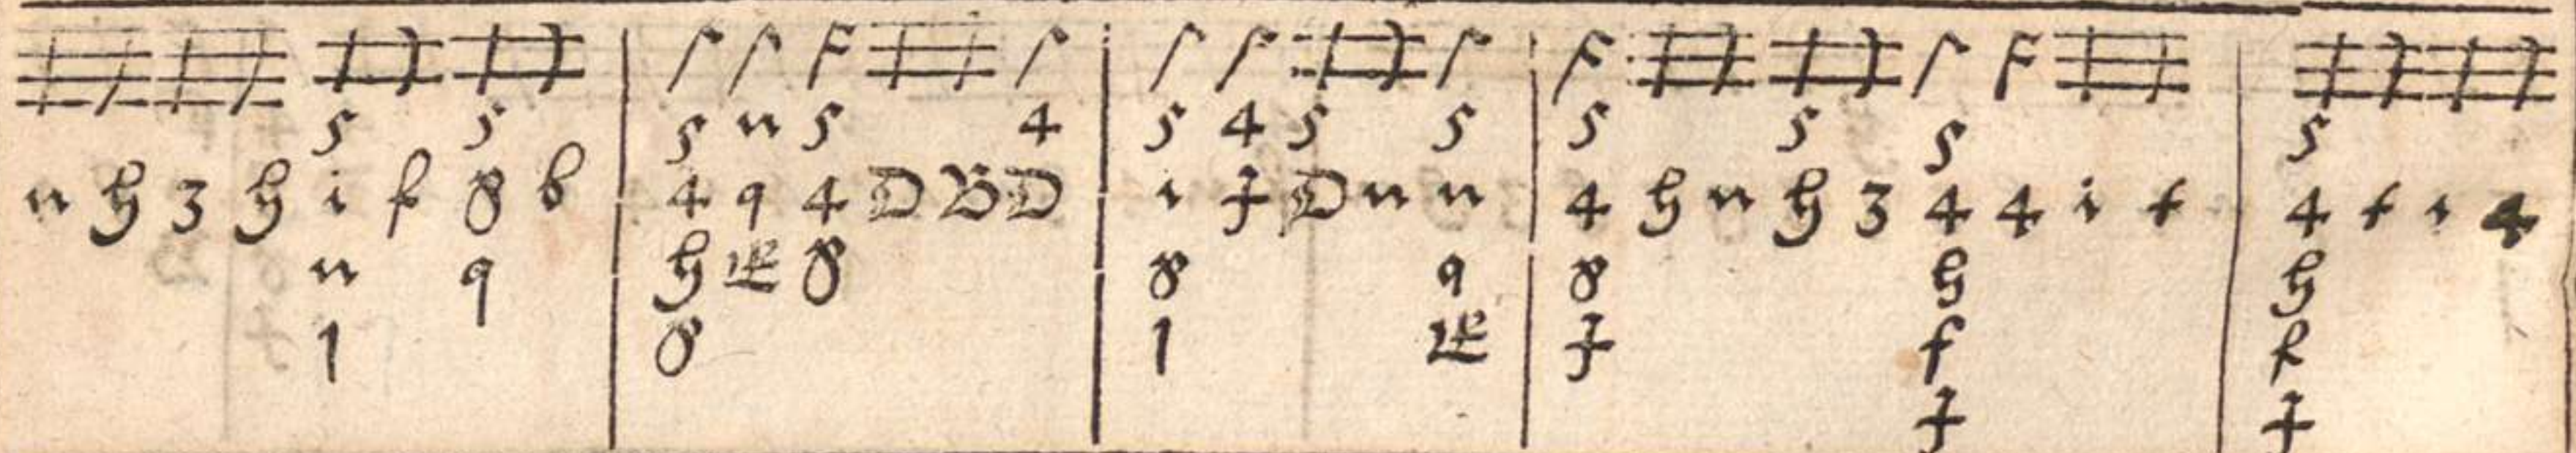 5 5 5 n 5 4 5 4 5 5 5 5 5 5
n g 3 g i f 8 b 4 q 4 D B D i f D n n 4 g n g 3 4 4 i f 4 f i 4
n q g 8 8 q 8 g g
1 8 1 f f k
f f